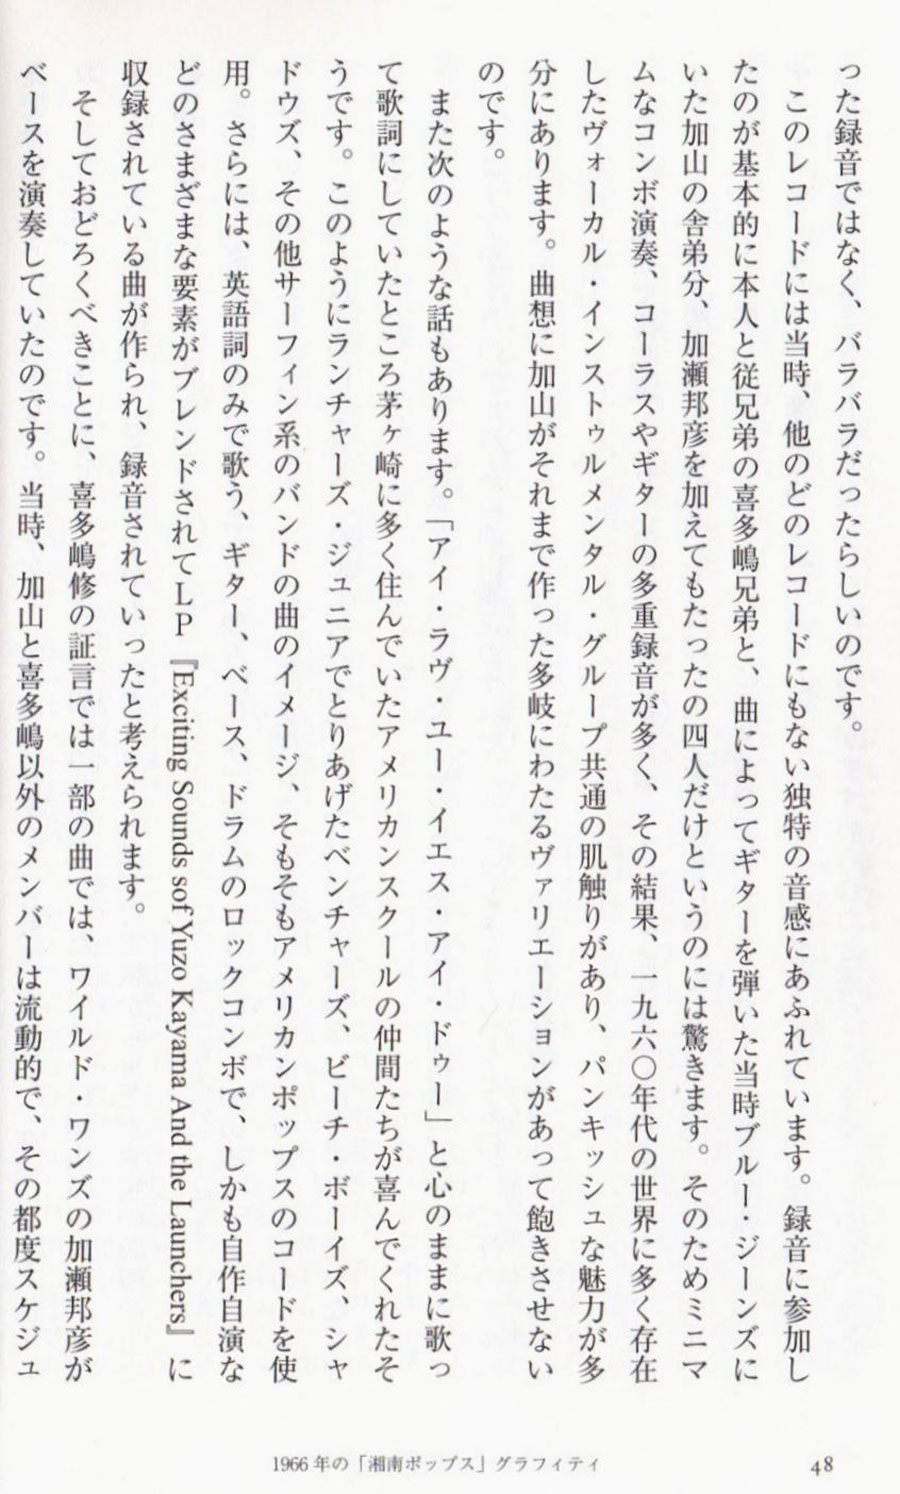 った録音ではなく、バラバラだったらしいのです。
このレコードには当時、他のどのレコードにもない独特の音感にあふれています。録音に参加し
たのが基本的に本人と従兄弟の喜多嶋兄弟と、曲によってギターを弾いた当時ブルー・ジーンズに
いた加山の舎弟分、加瀬邦彦を加えてもたったの四人だけというのには驚きます。そのためミニマ
ムなコンボ演奏、コーラスやギターの多重録音が多く、その結果、一九六〇年代の世界に多く存在
したヴォーカル・インストゥルメンタル・グループ共通の肌触りがあり、パンキッシュな魅力が多
分にあります。曲想に加山がそれまで作った多岐にわたるヴァリエーションがあって飽きさせない
のです。
また次のような話もあります。「アイ・ラヴ・ユー・イエス・アイ・ドゥー」と心のままに歌っ
て歌詞にしていたところ茅ヶ崎に多く住んでいたアメリカンスクールの仲間たちが喜んでくれたそ
うです。このようにランチャーズ・ジュニアでとりあげたベンチャーズ、ビーチ・ボーイズ、シャ
ドウズ、その他サーフィン系のバンドの曲のイメージ、そもそもアメリカンポップスのコードを使
用。さらには、英語詞のみで歌う、ギター、ベース、ドラムのロックコンボで、しかも自作自演な
どのさまざまな要素がブレンドされてLP『Exciting Sounds sof Yuzo Kayama And the Launchers』に
収録されている曲が作られ、録音されていったと考えられます。
そしておどろくべきことに、喜多嶋修の証言では一部の曲では、ワイルド・ワンズの加瀬邦彦が
ベースを演奏していたのです。当時、加山と喜多嶋以外のメンバーは流動的で、その都度スケジュ
1966年の「湘南ポップス」グラフィティ
48